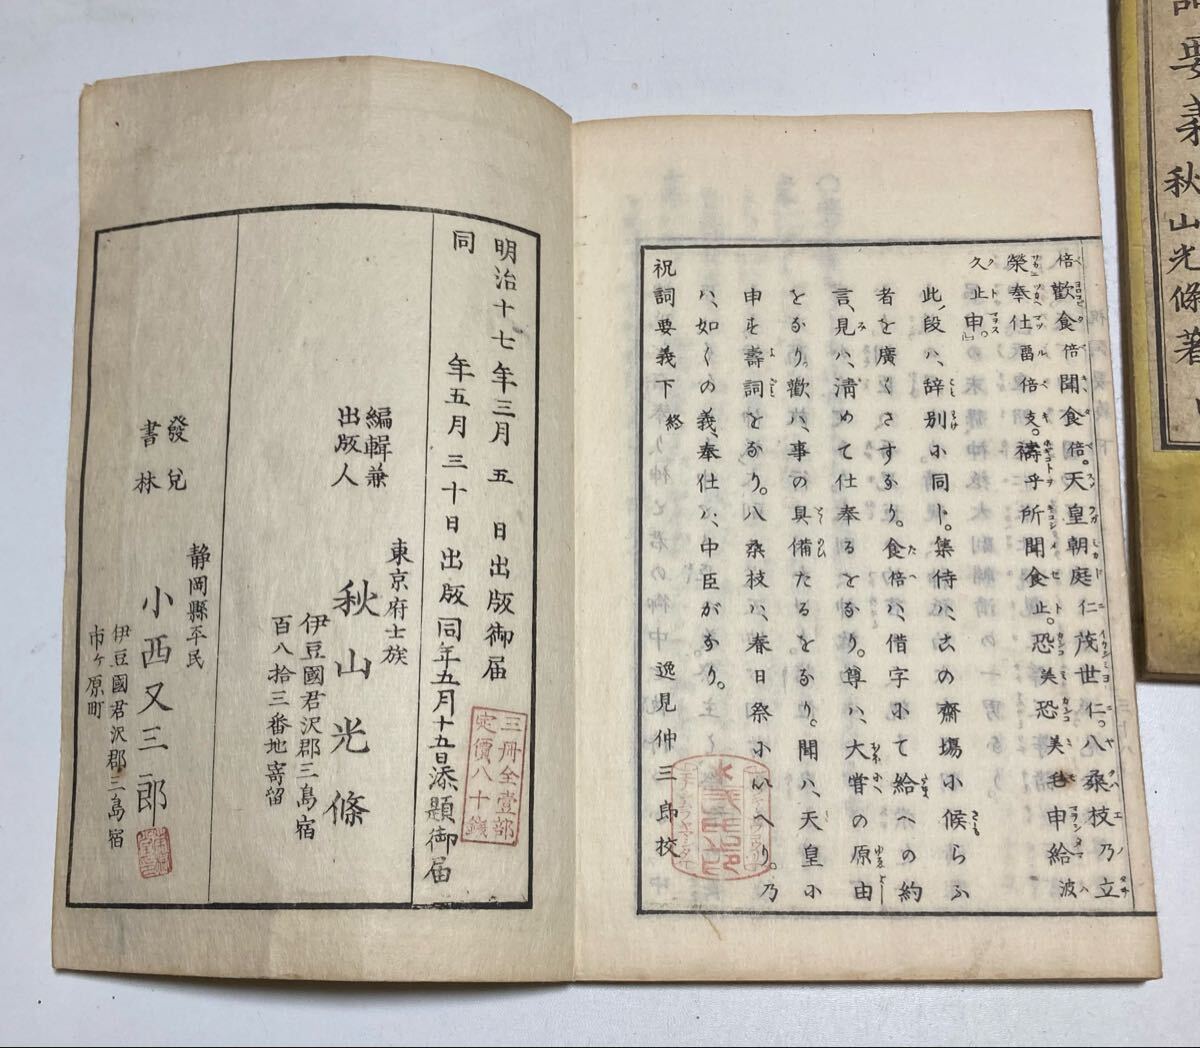 倍歡食倍聞食倍。天皇朝庭仁茂世仁。八桑枝乃立
榮奉仕畱倍支。禱乎所聞食止。恐美恐美毛申給波
久止申。
此ノ段ハ、辞別小同ト。集侍ハ、古の齋塲小候らふ
者を廣くさすなり。食倍ハ、借字小て給への約
言、見ハ、淸めて仕奉るとなり。尊ハ、大甞の原由
をなり。歡ハ、事の具備たるをなり。聞ハ、天皇小
申す壽詞をなり。八桑枝ハ、春日祭小いへり。乃
ハ、如くの義、奉仕ハ、中臣がなり。
祝詞要義下終 逸見仲三郎校
明治十七年三月五日出版御届
同 年五月三十日出版同年五月十五日添題御届
三冊全壹部
定價八十錢
編輯兼
出版人
東京府士族
秋山光條
伊豆國君沢郡三島宿
百八拾三番地寄留
發兌
書林
静岡縣平民
小西又三郎
伊豆國君沢郡三島宿
市ヶ原町
詞要義
秋山光條著